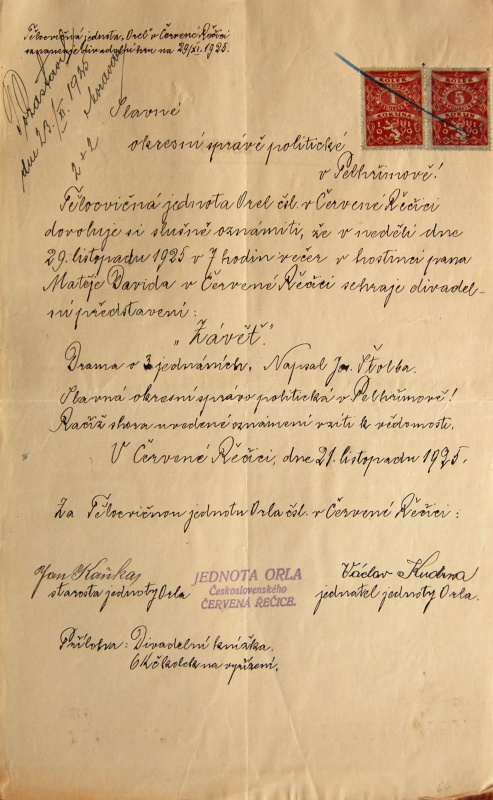 Tělocvičná jednota „Orel" v Červené Řečici
oznamuje divadelní hru na 29/XI. 1925.
dne 23./XI. 1925
2 + 2
Slavné
okresní správě politické
v Pelhřimově!
KOLEK
1
KORUNA
KOLEK
5
KORUN
Tělocvičná jednota Orel čsl. v Červené Řečici
dovoluje si slušně oznámiti, že v neděli dne
29. listopadu 1925 v 7 hodin večer v hostinci pana
Matěje Davida v Červené Řečici sehraje divadel-
ní představení:
„Závěť."
Drama o 3 jednáních. Napsal Jos. Štolba.
Slavná okresní správo politická v Pelhřimově!
Račiž shora uvedené oznámení vzíti k vědomosti.
V Červené Řečici, dne 21. listopadu 1925.
Za Tělocvičnou jednotu Orla čsl. v Červené Řečici:
Jan Kaňka
starosta jednoty Orla
JEDNOTA ORLA
Československého
ČERVENÁ ŘEČICE.
Václav Kudrna
jednatel jednoty Orla.
Příloha: Divadelní knížka.
6 Kč kolek na vyřízení.